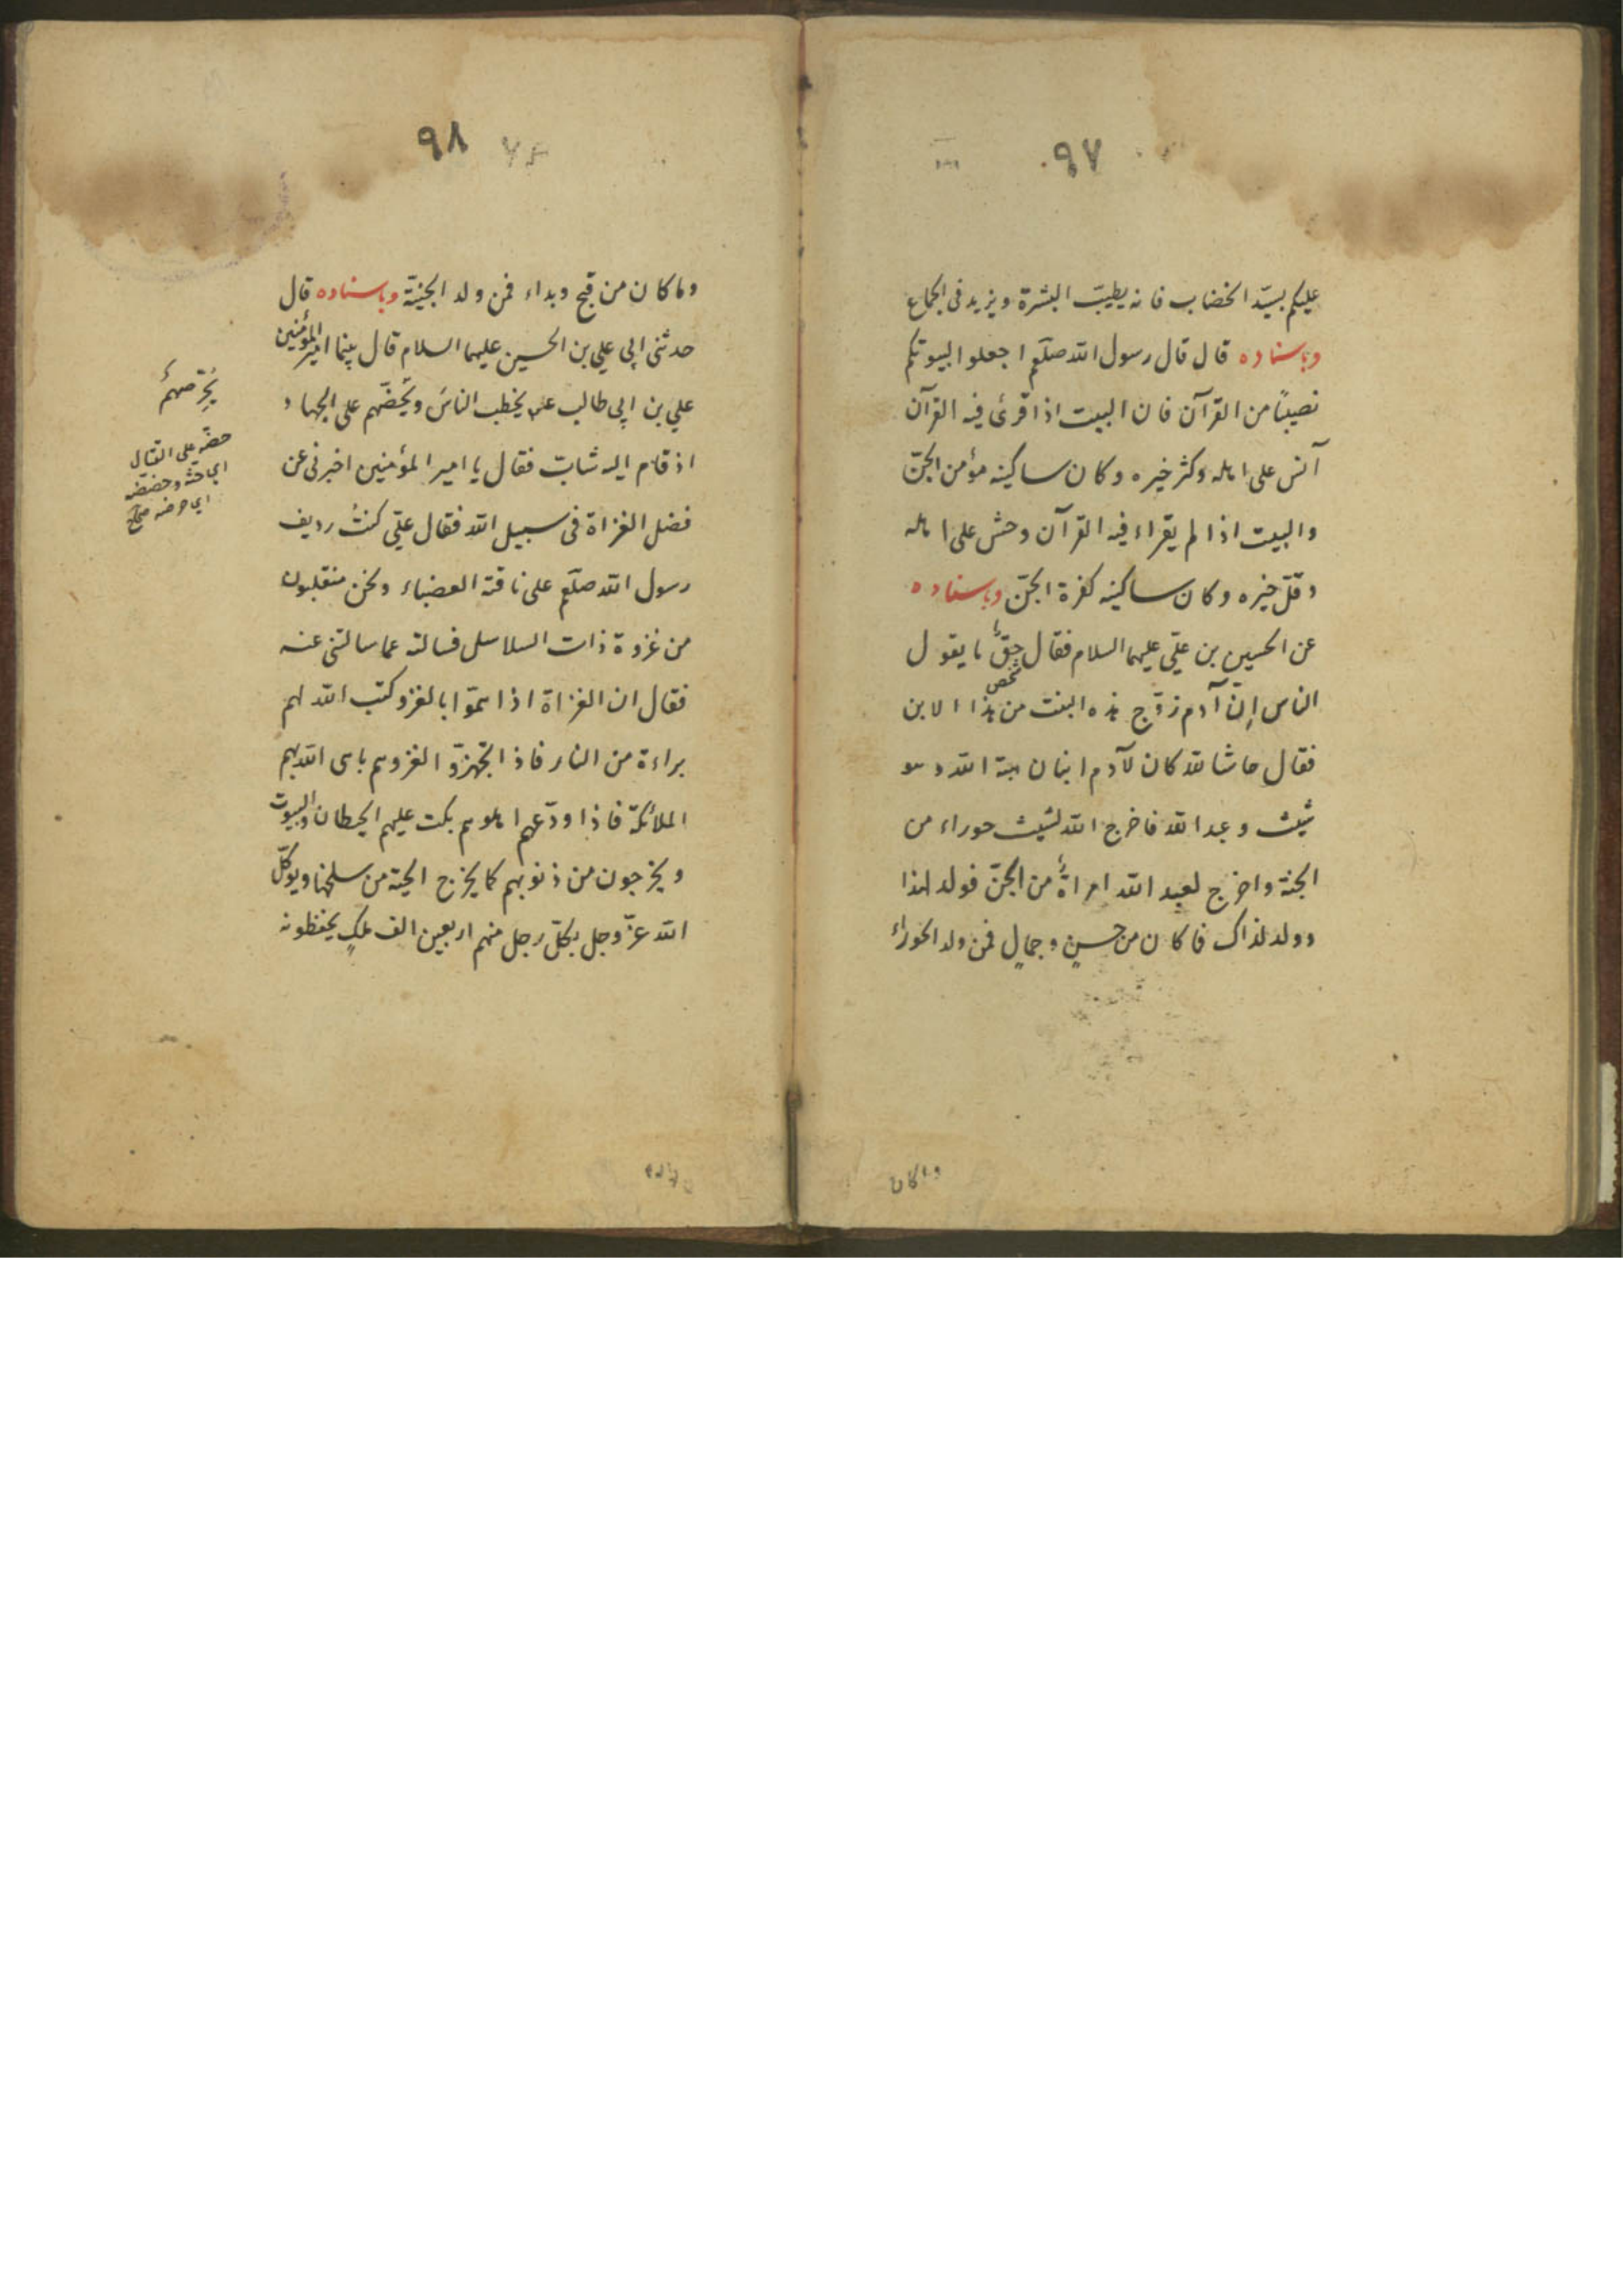 ٩٧
عليكم بسيّد الخضاب فانه يطيب البشرة ويزيد فى الجماع
وباسناده قال قال رسول الله صلعم اجعلوا البيوتكم
نصيبًا من القرآن فان البيت اذا قرئ فيه القرآن
آنس على اهله وكثر خيره وكان ساكينه مؤمن الجنّ
والبيت اذا لم يقراء فيه القرآن وحش على اهله
وقلّ خيره وكان ساكينه كفرة الجنّ وباسناده
عن الحسين بن عليّ عليهما السلام فقال حقّ ما يقول
الناس إنّ آدم زوّج هذه البنت من هذا الابن
شخص
فقال حاشا لله كان لآدم ابنان هبة الله وهو
شيث وعبد الله فاخرج الله لشيث حوراء من
الجنة واخرج لعبد الله امراةً من الجنّ فولد لهذا
وولد لذاك فما كان من حسنٍ وجمالٍ فمن ولد الحوراء
وماكان
٩٨
وما كان من قبح وبداء فمن ولد الجنيّة وباسناده قال
حدثنى ابي علي بن الحسين عليهما السلام قال بينما امير المؤمنين
علي بن ابي طالب عم يخطب الناسَ ويحُضّهم على الجهاد
اذ قام اليه شابّ فقال يا امير المؤمنين اخبرنى عن
فضل الغزاة فى سبيل الله فقال عليّ كنتُ رديف
رسول الله صلعم على ناقته العضباء ونحن منقلبون
من غزوة ذات السلاسل فسالته عما سالتنى عنه
فقال ان الغزاة اذا همّوا بالغزو كتب الله لهم
براءة من النار فاذا تجّهزوّا لغزوهم باهى الله بهم
الملائكة فاذا ودّعهم اهلوهم بكت عليهم الحيطان والبيوت
ويخرجون من ذنوبهم كما يخرج الحية من سلخها ويوكّل
الله عزّ وجل بكلّ رجل منهم اربعين الف ملكٍ يحفظونه
يُحرّصهمُ
حضّه على القتال
اي حثّه وحضّضه
اي حرضه صحاح